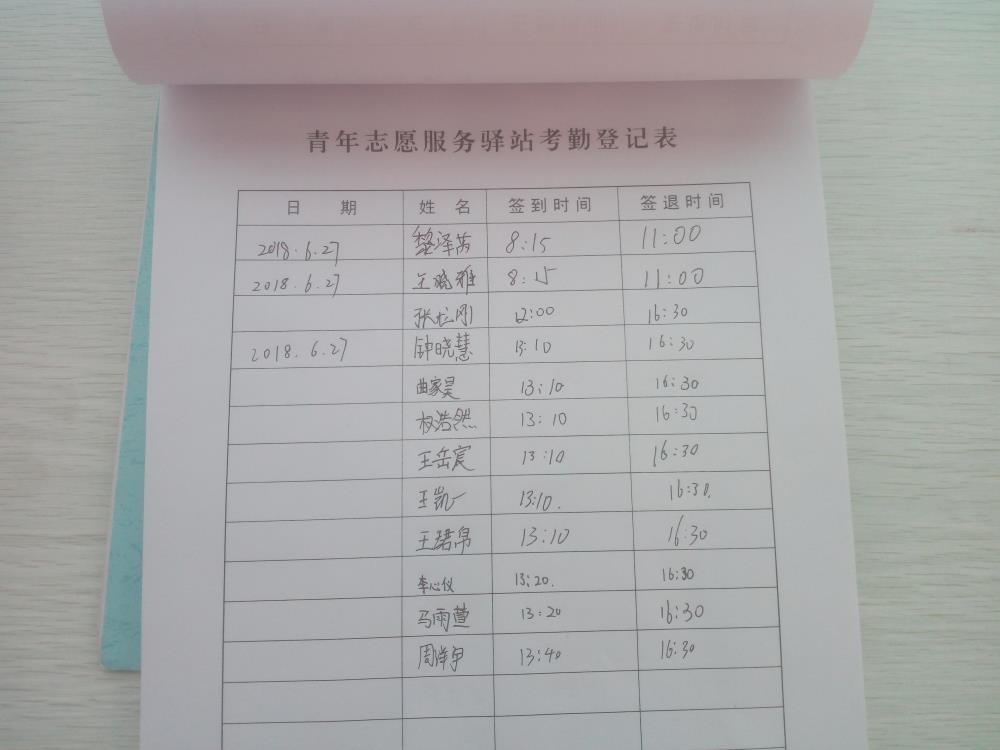 青年志愿服务驿站考勤登记表
日 期 姓 名 签到时间 签退时间
2018.6.27 黎泽芮 8:15 11:00
2018.6.27 王晓雅 8:15 11:00
12:00 16:30
2018.6.27 钟晓慧 13:10 16:30
曲家昊 13:10 16:30
权浩然 13:10 16:30
王岳宸 13:10 16:30
王凯一 13:10. 16:30.
王珺帛 13:10 16:30
李心仪 13:20. 16:30
马雨萱 13:20 16:30
周洋伊 13:40 16:30